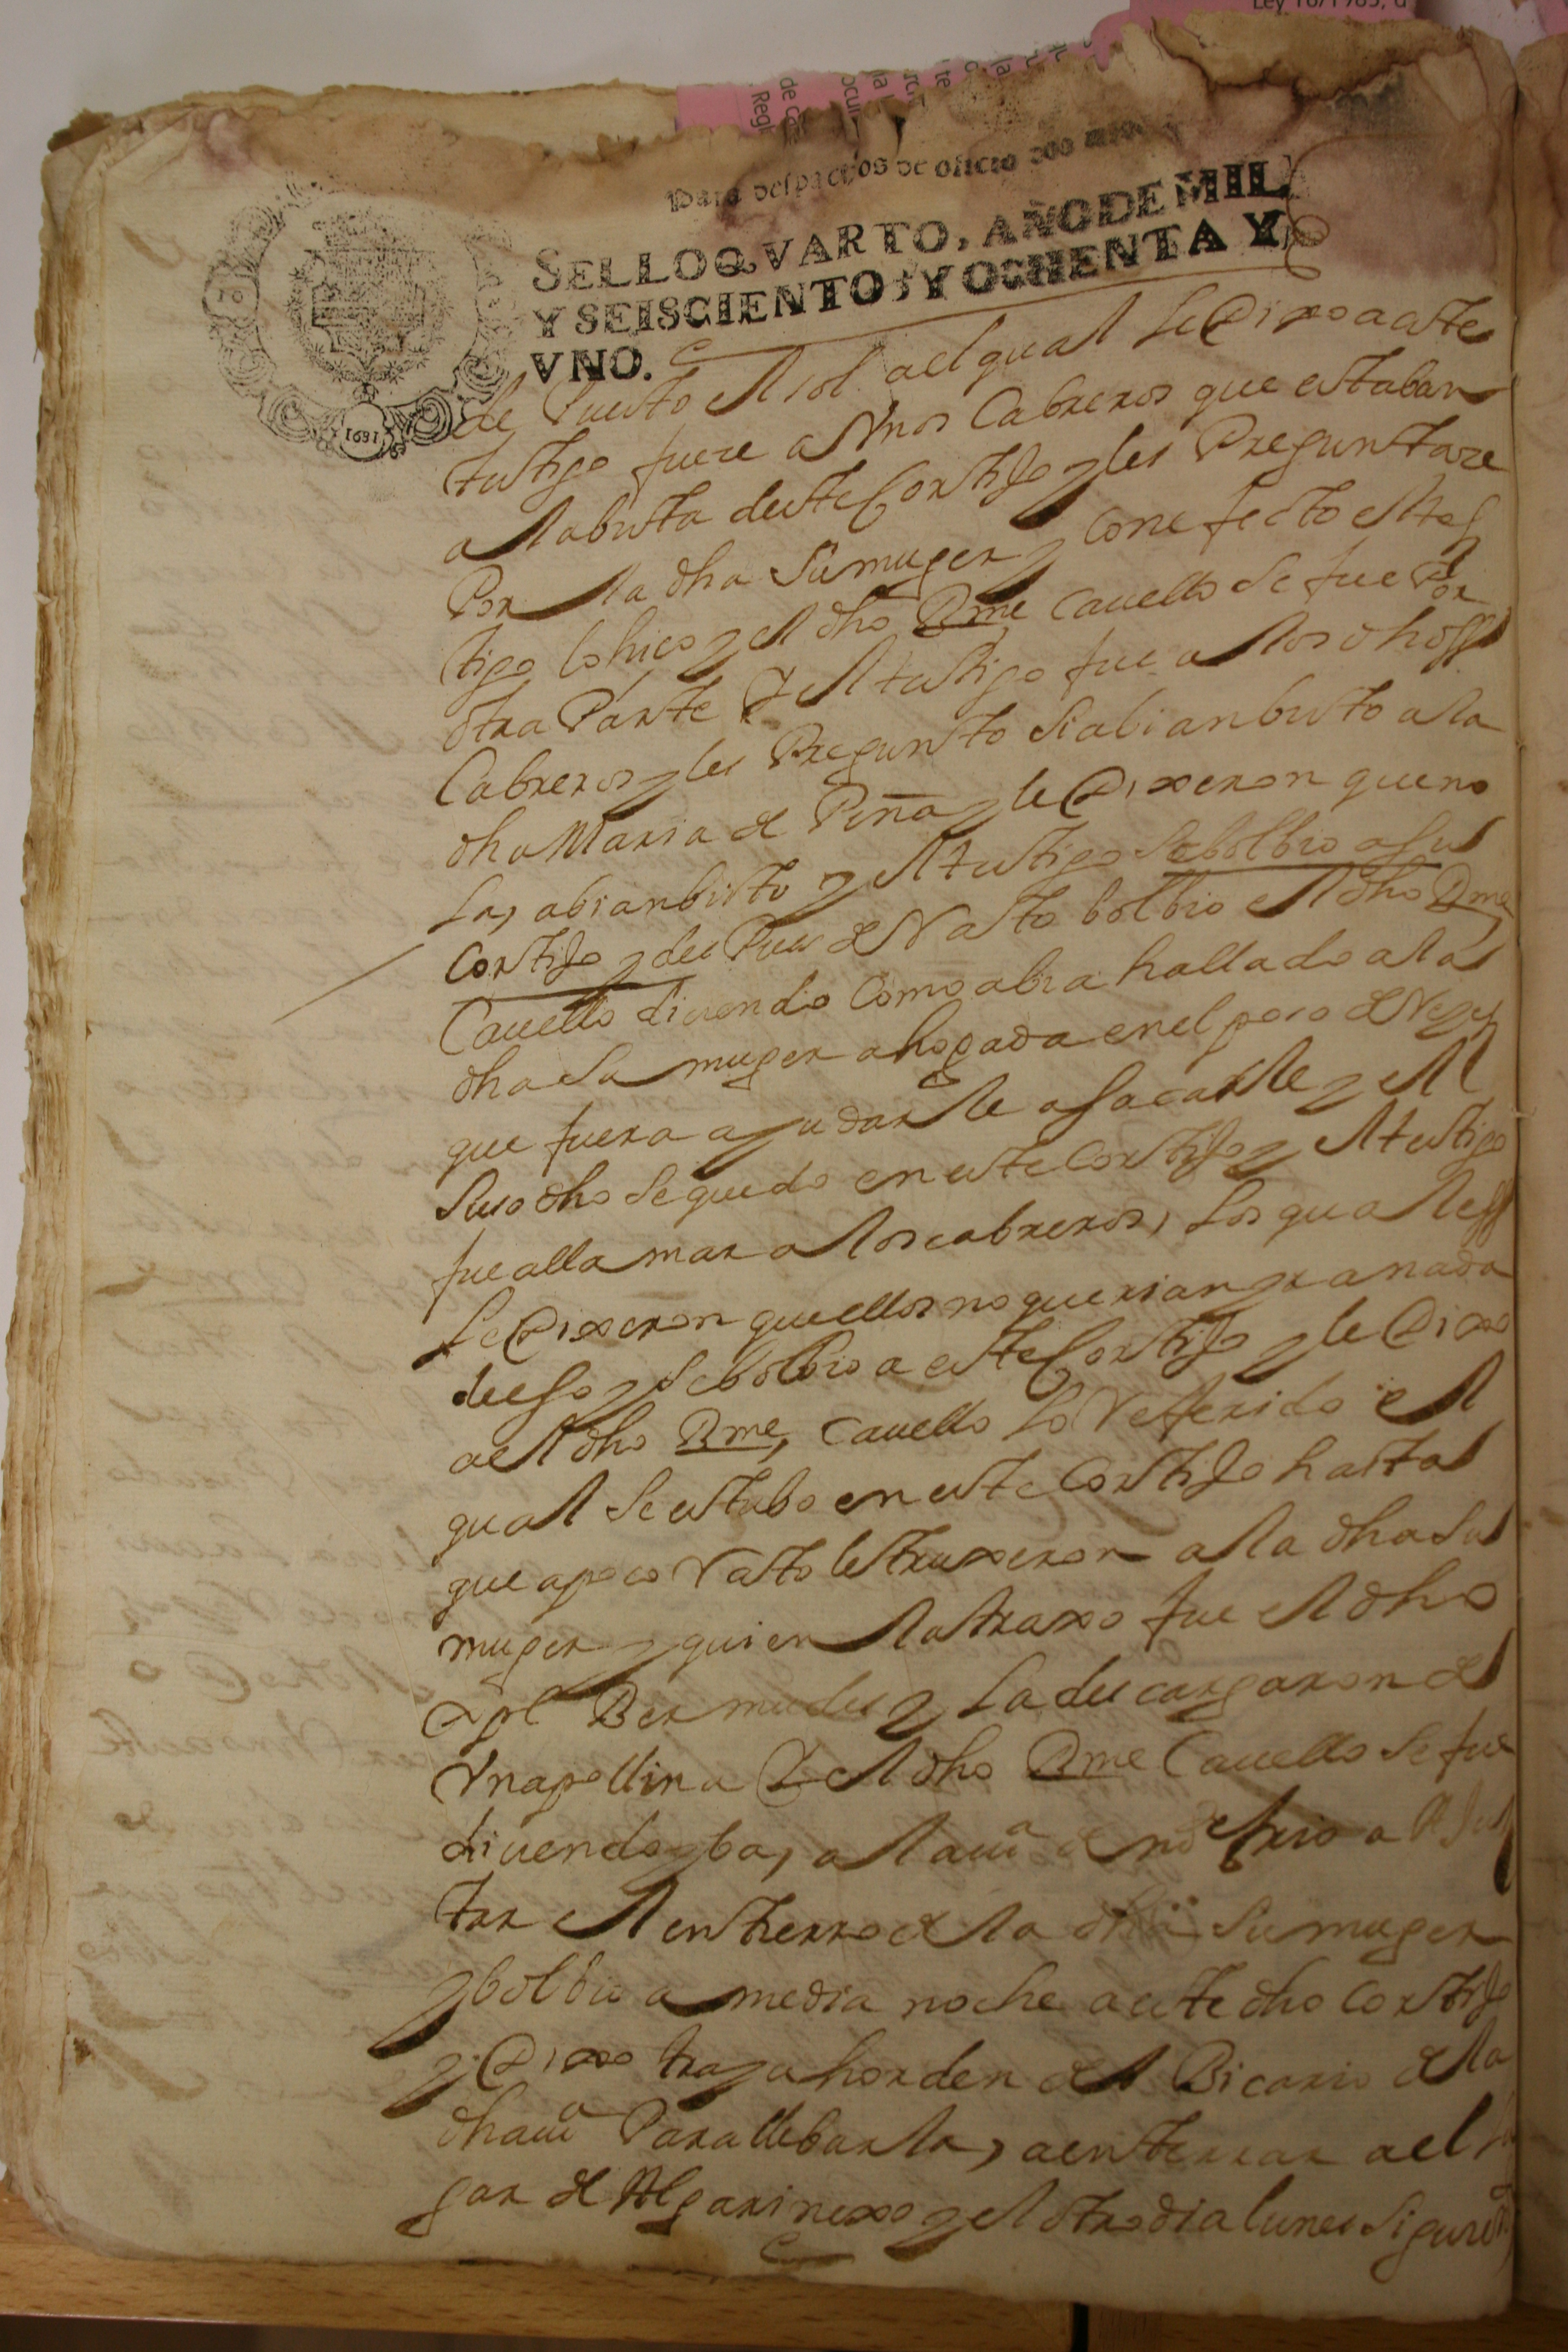 Ley 16/1985, d
Para despachos de oficio dos mrs
SELLO QVARTO, AÑO DE MIL
Y SEISCIENTOS Y OCHENTA Y
VNO.
1681
de Puesto el sol ael qual le Dixo a este
testigo fuere a Vnos Cabreros que estaban
a la bista deste Cortijo y les Preguntare
Por la dha su muger y con efecto el tes
tigo lo hiço y el dho Bme Cauello se fue Por
otra Parte Y el testigo fue a los dhoss
Cabreros y les Pregunto si abian bisto a la
dha Maria de Peña y le Dixeron que no
la, abian bisto y el testigo se bolbio a su
Cortijo y des Pues de Vn Rato bolbio el dho Bme
Cauello diciendo Como abia hallado a la
dha su muger ahogada en el poço de
que fuera a yudarle a sacarle y el
suso dho se quedo en este Cortijo y el testigo
fue a llamar a los cabreros, los quales
le Dixeron que ellos no querian yr a nada
de eso y se bolbio a este Cortijo y le Dixo
ael dho Bme, Cauello lo Referido el
qual se estubo en este Cortijo hasta
que a poco Rato le truxeron a la dha su
muger y quien la traxo fue el dho
Xpl Bermudes y la descargaron de
Vna pollina Y el dho Bme Cauello se fue
diciendo yba, a la uia de a
tar el entierro de la dha su muger
y bolbio a media noche a este dho Cortijo
y Dixo traya horden del Bicario de la
dha uia Para llebarla, a enterrar ael lu
gar de Algarinexo y el otro dia lunes siguiete